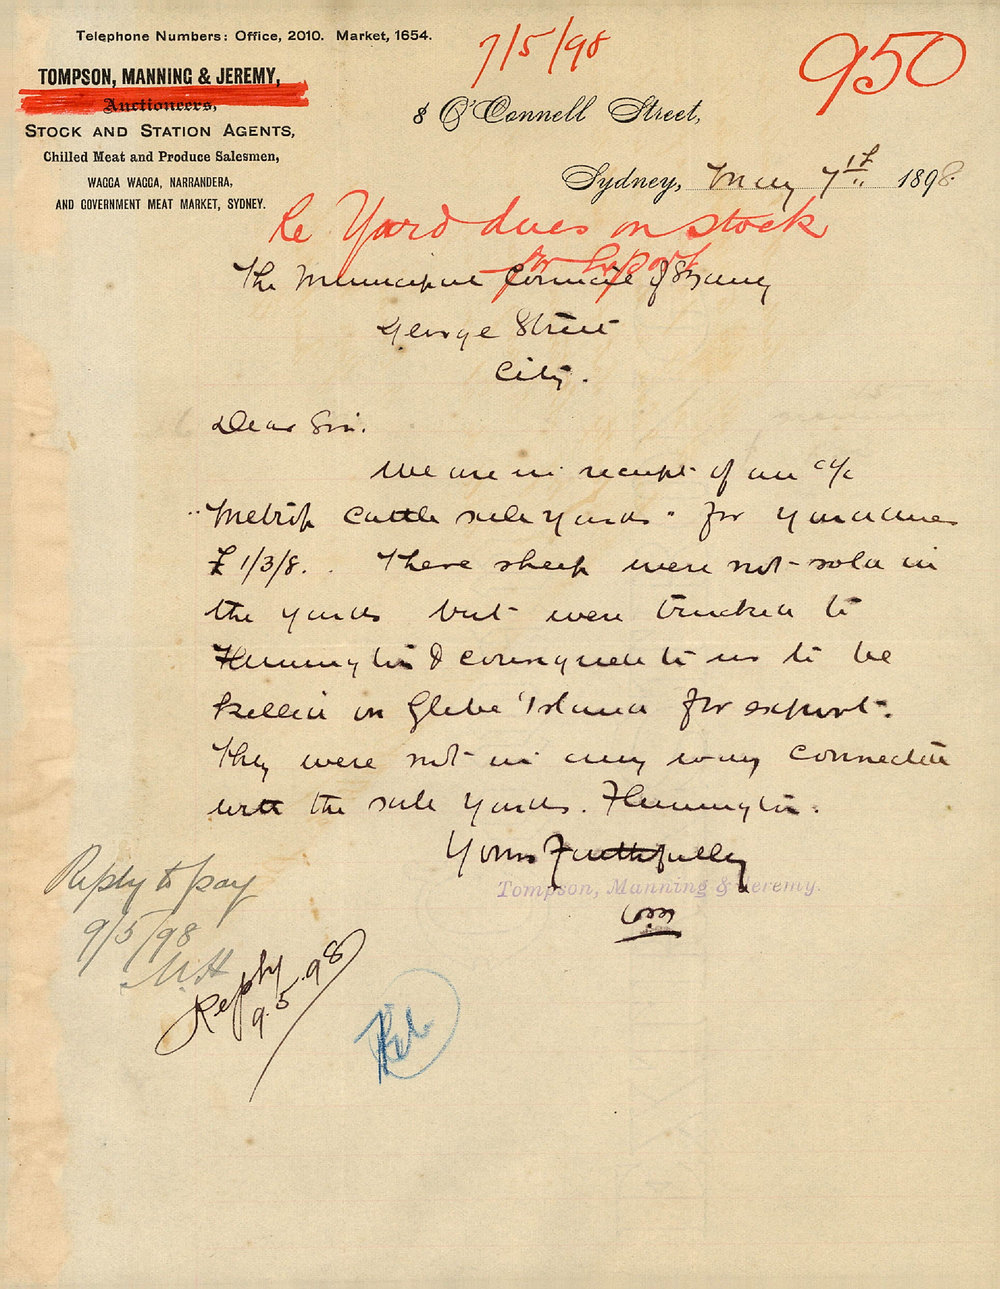 Telephone Numbers: Office, 2010. Market, 1654.
7/5/98
950
TOMPSON, MANNING & JEREMY,
Auctioneers,
STOCK AND STATION AGENTS,
Chilled Meat and Produce Salesmen,
WAGGA WAGGA, NARRANDERA,
AND GOVERNMENT MEAT MARKET, SYDNEY.
8 O'Connell Street,
Sydney, May 7th 1898.
Re Yard dues on stock
for Export
The Municipal Council of Sydney
George Street
City.
Dear Sir.
We are in receipt of an a/c
"Metrop Cattle sale yards" for yard dues
£1/3/8. These sheep were not sold in
the yards but were trucked to
Flemington & consigned to us to be
killed on Glebe Island for export.
They were not in any way connected
with the sale yards. Flemington.
Yours Faithfully
Tompson, Manning & Jeremy.
Reply to pay
9/5/98
Reply
9.5.98